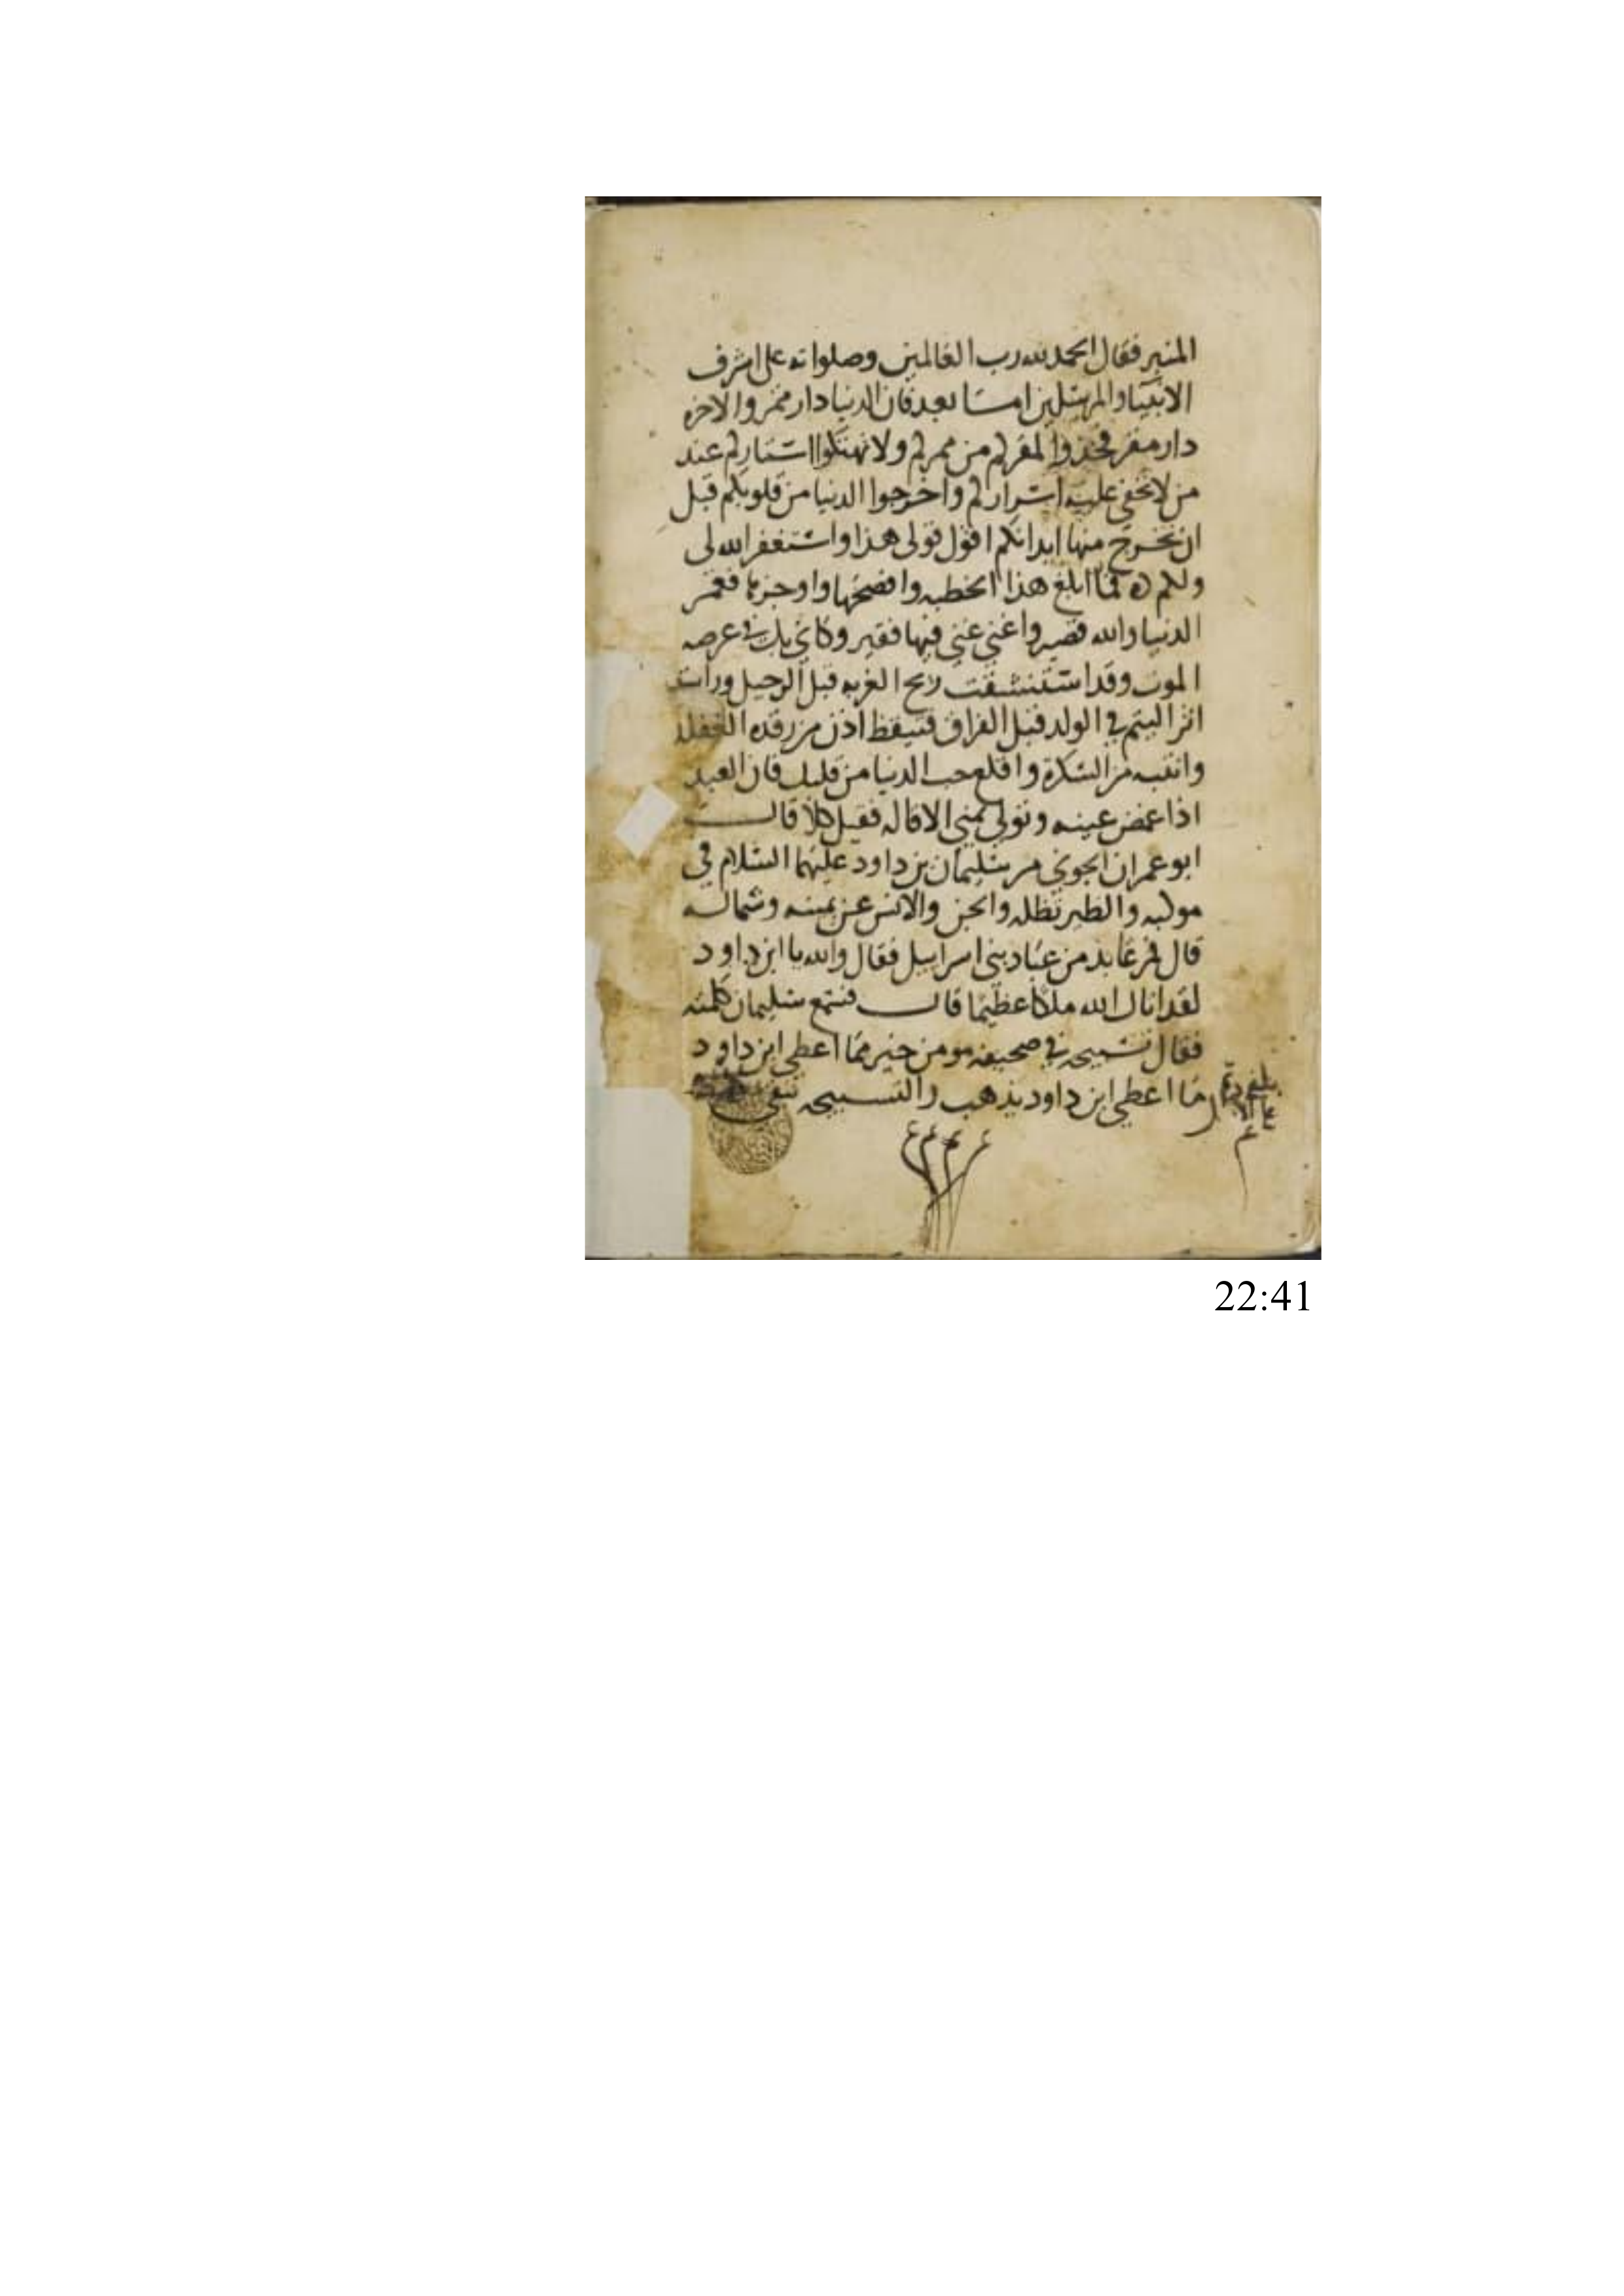 المنبر فقال الحمد لله رب العالمين وصلواته على اشرف
الانبيا والمرسلين امـا بعد فان الدنيا دار ممر والاخره
دار مقر فخذوا لمقركم من ممركم ولا تهتكوا استاركم عند
من لا يخفى عليه اسراركم واخرجوا الدنيا من قلوبكم قبل
ان تخرج منها ابدانكم اقول قولى هذا واستغفر الله لى
ولكم فما ابلغ هذا الخطبه وافصحها واوجزها فعمر
الدنيا والله قصير واغنى غنى فيها فقير وكانى بك فى عرصه
الموت وقد استنشقت ريح الغربه قبل الرحيل ورات
اثر اليتم في الولد قبل الفراق فتيقظ اذن من رقده الغفله
وانتبه من السكرة واقلع حب الدنيا من قلبك فان العبد
اذا غمض عينه وتولى تمنى الاقاله فقيل كلا قال
ابو عمران الجوني مر سليمان بن داود عليهما السلام في
موكبه والطير تظله والجن والانس عن يمينه وشماله
قال فمر بعابد من عباد بنى اسراييل فقال والله يا ابن داود
لقد اتاك الله ملكا عظيما قال فسمع سليمان كلمته
فقال تسبيحه في صحيفه مومن خير مما اعطى ابن داود
ما اعطى ابن داود يذهب والتسبيحه تبقى
22:41